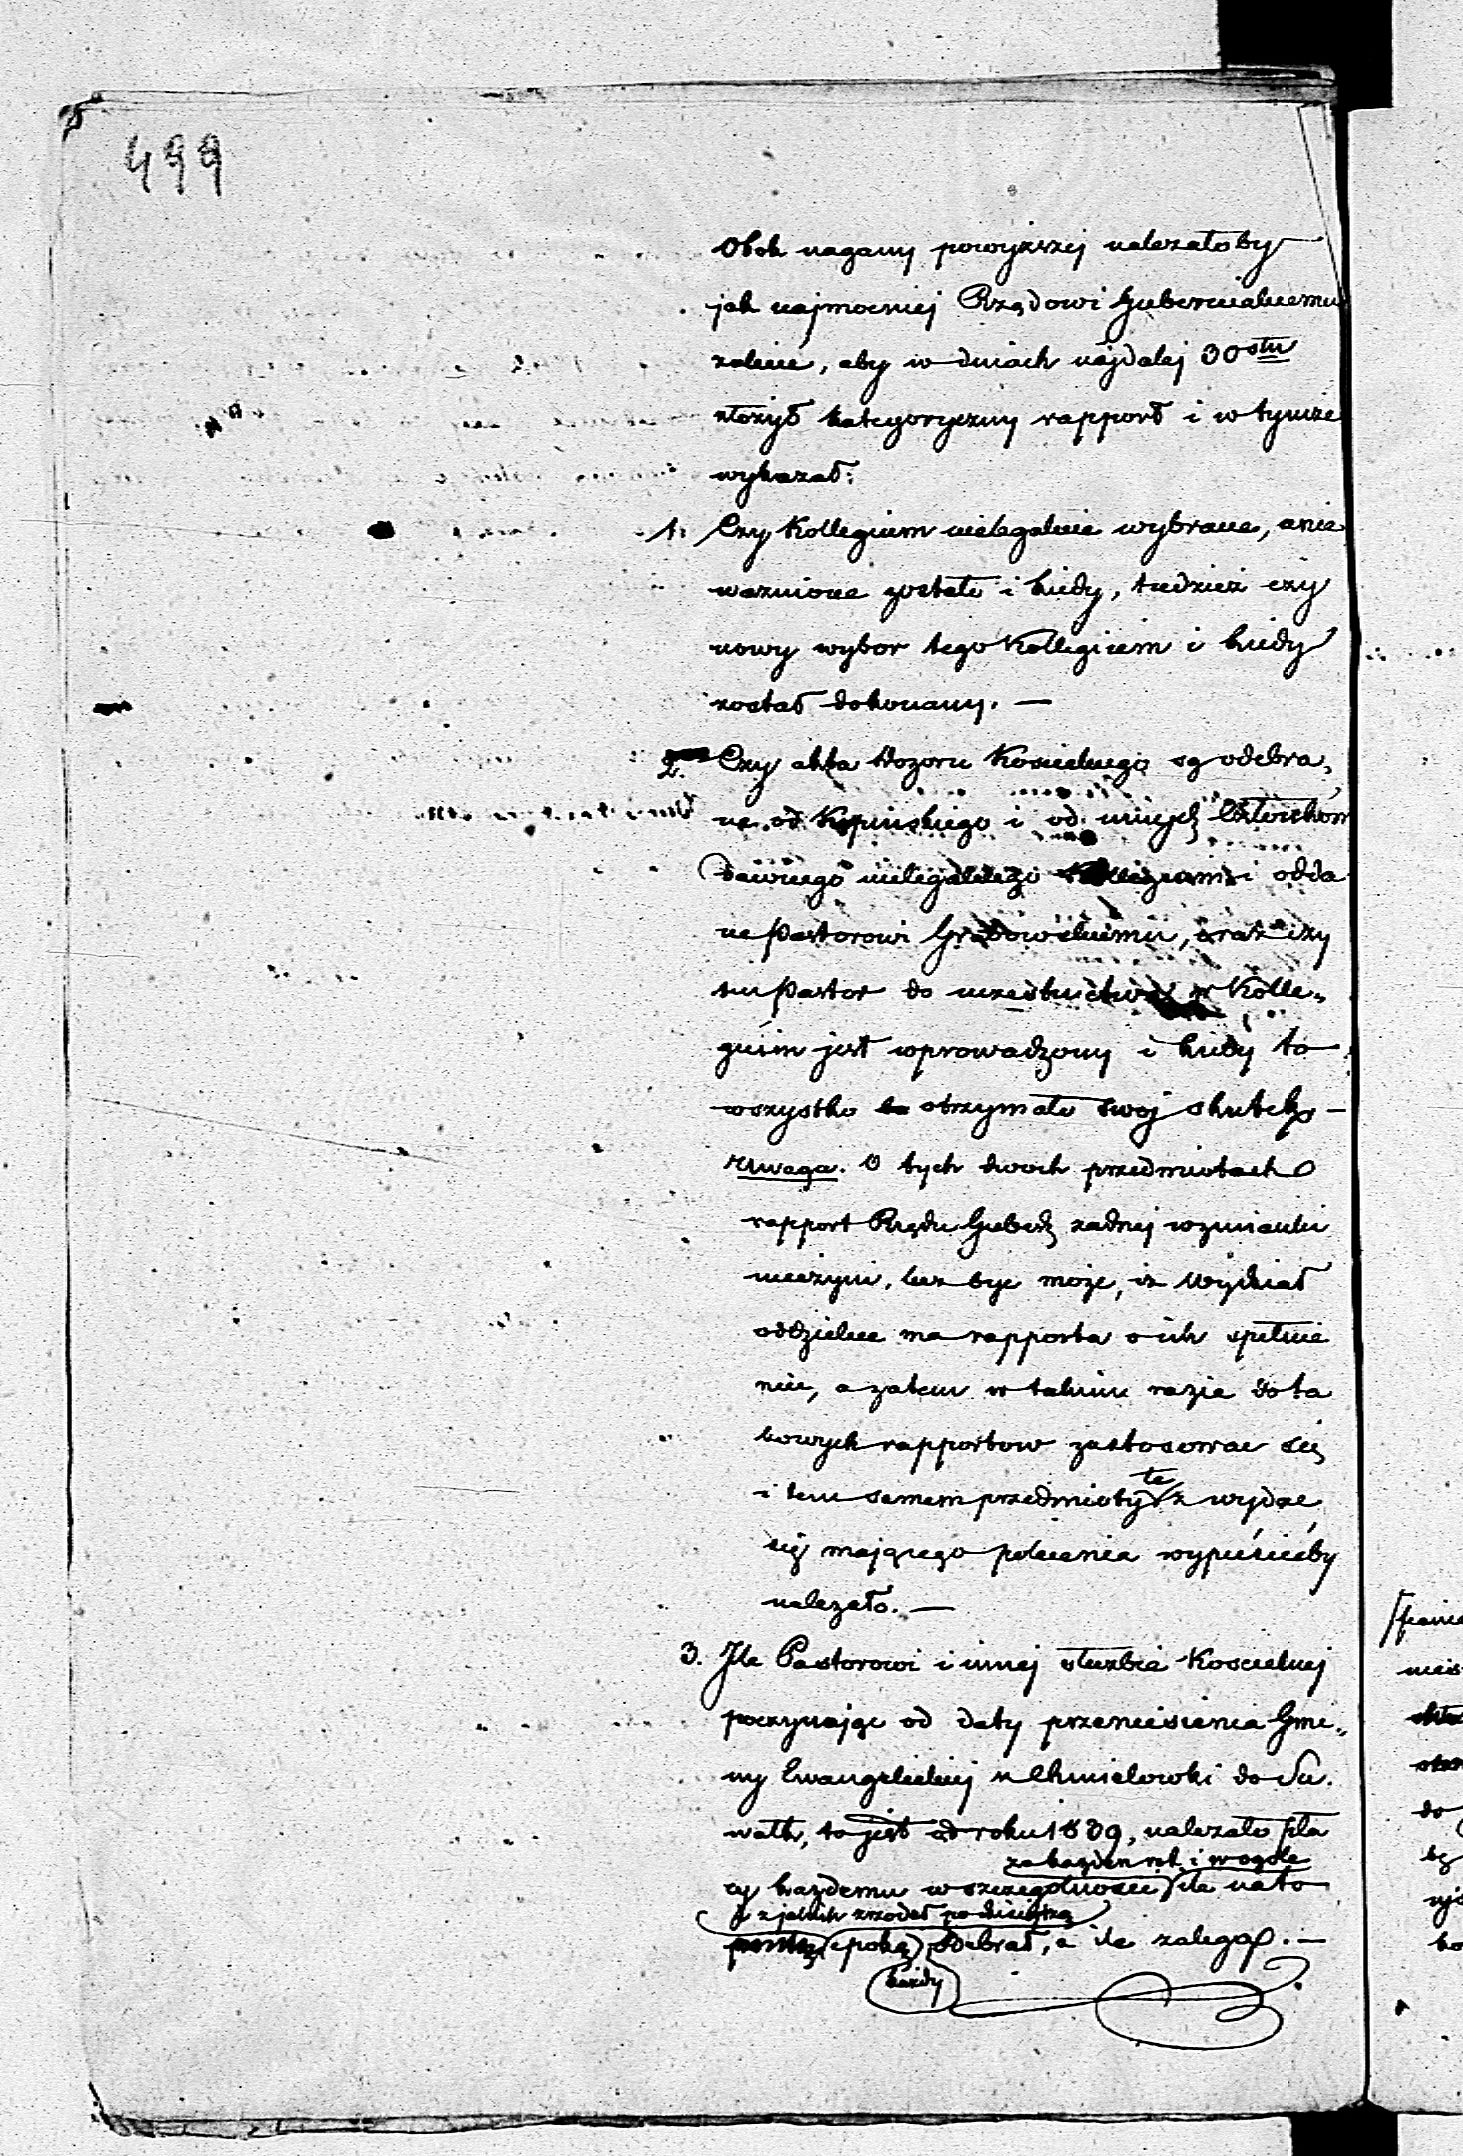 499
Obok nagany powyższej należałoby
jak najmocniej Rządowi Gubernialnemu
zalecić, aby w dniach najdalej 30stu
złożył kategoryczny rapport i w tymże
wykazał:
1. Czy Kollegium nielegalnie wybrane, unie
ważnione zostało i kiedy, tudzież czy
nowy wybor tego Kollegium i kiedy
został dokonany. —
2. Czy akta Dozoru Koscielnego są odebra„
ne od i od innych Członków
dawnego nielegalnego Kollegium i odda
ne Pastorowi Grabowskiemu, oraz czy
ten Pastor do uczestnictwa w Kolle„
gium jest wprowadzony i kiedy to
wszystko otrzymało swoj skutek. —
Uwaga. O tych dwoch przedmiotach
rapport Rządu Gub. zadnej wzmianki
nieczyni, lecz byc może, iz Wydział
oddzielne ma rapporta o ich spełnie
niu, a zatem w takim razie do ta
kowych rapportow zastosowac się
i tem samem przedmioty te z wydac
się mającego polecenia wypuścićby
należało. —
3. Ile Pastorowi i innej słuzbie Koscielnej
poczynając od daty przeniesienia Gmi„
ny Ewangelickiej z Chmielowki do Su.
wałk, to jest od roku 1839, należało pła
za kazden rok i wogole
cy kazdemu w szczegolnosci ile na to
z jakich zrzodeł po dzisiejszą
epokę odebrał, a ile zalega. —
każdy
do